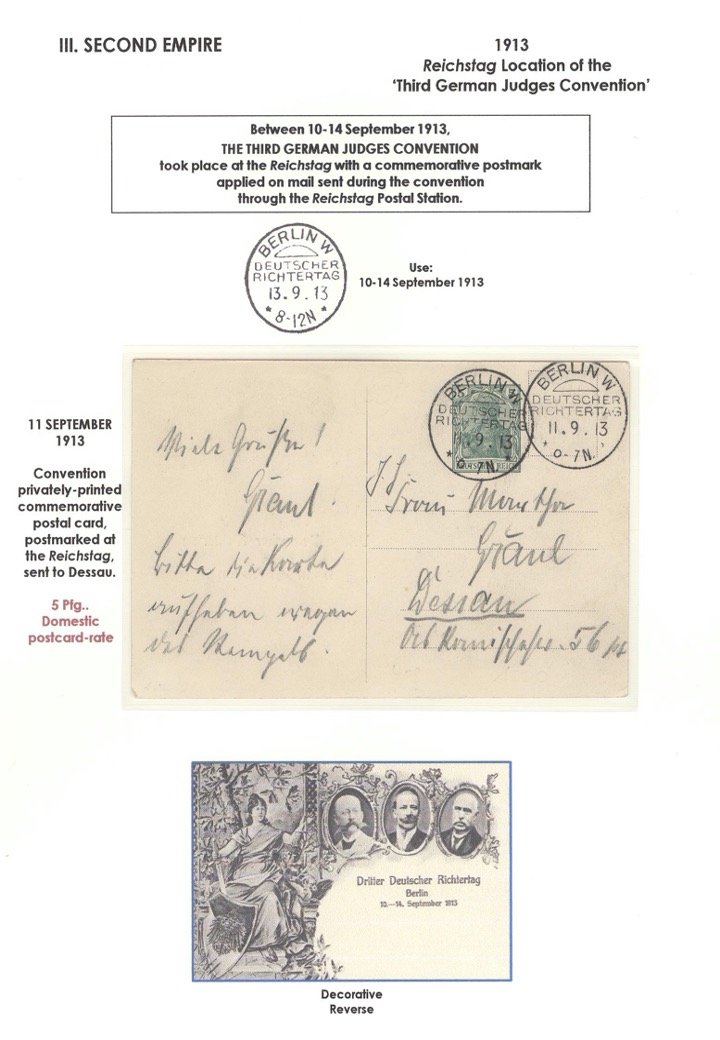 III. SECOND EMPIRE
1913
Reichstag Location of the
'Third German Judges Convention'
Between 10-14 September 1913,
THE THIRD GERMAN JUDGES CONVENTION
took place at the Reichstag with a commemorative postmark
applied on mail sent during the convention
through the Reichstag Postal Station.
BERLIN W
DEUTSCHER
RICHTERTAG
13.9.13
* 8-12N *
Use:
10-14 September 1913
11 SEPTEMBER
1913
Convention
privately-printed
commemorative
postal card,
postmarked at
the Reichstag,
sent to Dessau.
5 Pfg..
Domestic
postcard-rate
BERLIN W
DEUTSCHER
RICHTERTAG
11.9.13
7N.
DEUTSCHES REICH
BERLIN W
DEUTSCHER
RICHTERTAG
11.9.13
* 6-7N. *
Viele Grüße!
Bitte die Karte
aufheben wegen
des Stempels.
Frau Martha
Dessau
56
Dritter Deutscher Richtertag
Berlin
10.—14. September 1913
Decorative
Reverse